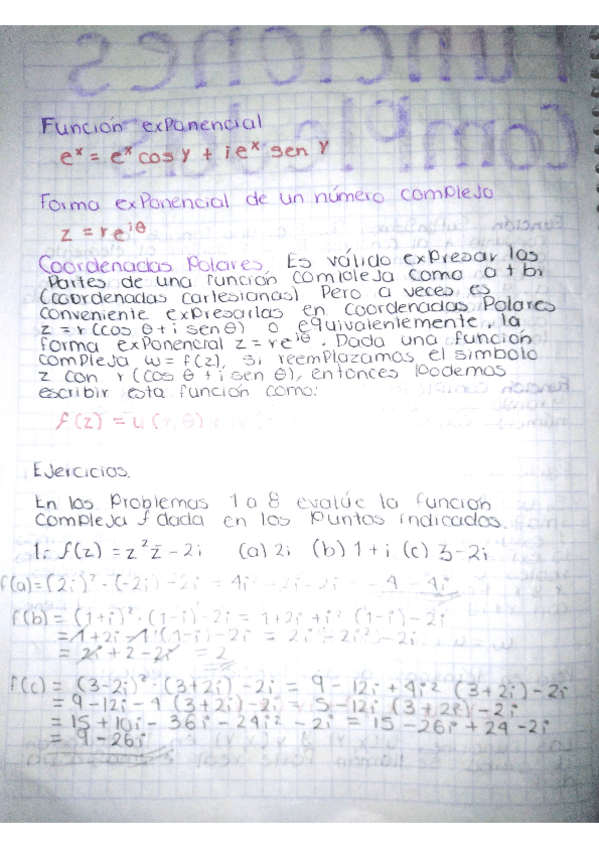 Función exponencial
eˣ = eˣ cos y + i eˣ sen y
Forma exponencial de un número complejo
z = re^iθ
Coordenadas Polares. Es válido expresar las
partes de una función compleja como a + bi
(coordenadas cartesianas) Pero a veces es
conveniente expresarlas en coordenadas Polares
z = r (cos θ + i sen θ) o equivalentemente, la
forma exponencial z = re^iθ. Dada una función
compleja w = f(z), si reemplazamos el simbolo
z con r (cos θ + i sen θ), entonces podemos
escribir esta función como:
f(z) = u(r, θ) +
Ejercicios.
En los Problemas 1 a 8 evalúe la función
compleja f dada en los puntos indicados.
1.- f(z) = z² z̄ - 2i (a) 2i (b) 1 + i (c) 3 - 2i
f(a) = (2i)² · (-2i) - 2i = 4i² · -2i - 2i = -4 - 4i
f(b) = (1+i)² · (1-i) - 2i = 1 + 2i + i² (1-i) - 2i
= 1 + 2i - 1 (1-i) - 2i = 2i - 2i² - 2i
= 2i + 2 - 2i = 2
f(c) = (3-2i)² · (3+2i) - 2i = 9 - 12i + 4i² (3+2i) - 2i
= 9 - 12i - 4 (3+2i) - 2i = 5 - 12i (3+2i) - 2i
= 15 + 10i - 36i - 24i² - 2i = 15 - 26i + 24 - 2i
= 9 - 26i